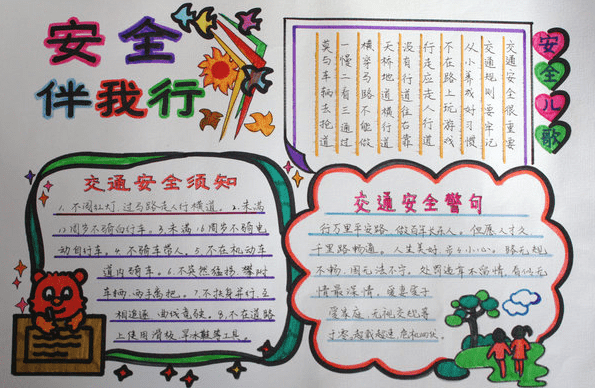 安全
伴我行
安全儿歌
交通安全很重要
交通规则要牢记
从小养成好习惯
不在路上玩游戏
行走应走人行道
没有行道往右靠
天桥地道横行道
横穿马路不能做
一慢二看三通过
莫与车辆去抢道
交通安全须知
1.不闯红灯,过马路走人行横道。2.未满
12周岁不骑自行车。3.未满16周岁不骑电
动自行车。4.不骑车带人。5.不在机动车
道内骑车。6.不突然猛拐、攀扶
车辆、两手离把。7.不扶身并行、互
相追逐、曲线竞驶。8.不在道路
上使用滑板、旱冰鞋等工具。
交通安全警句
行万里平安路,做百年长在人。但愿人才久
千里路畅通。人生美好,步步小心。路无规
不畅,国无法不宁。处罚违章不留情,看似无
情最深情。爱妻爱子
爱家庭,无视交规等
于零。超载超速,危机四伏。